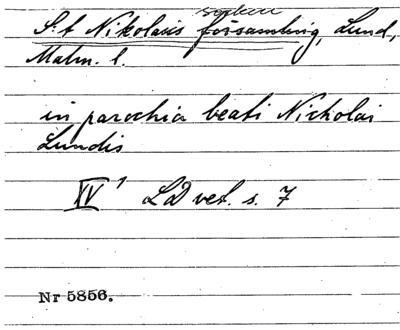 socken
S:t Nikolaus församling, Lund,
Malm. l.
in parochia beati Nicholai
Lundis
XV¹ LD vet. s. 7
Nr 5856.